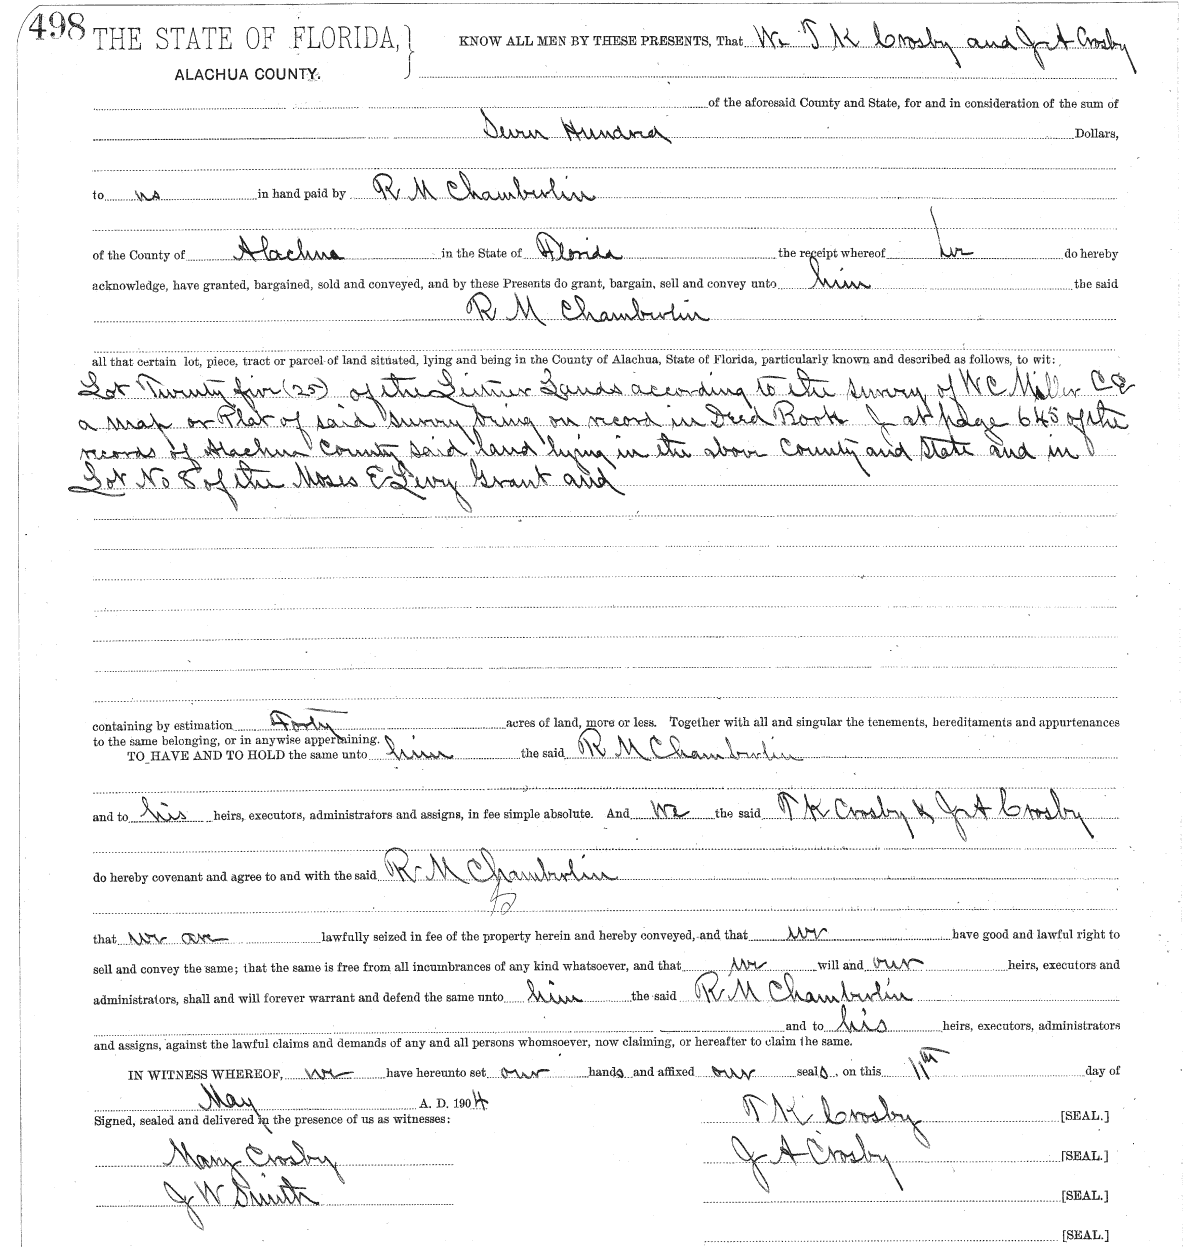 498 THE STATE OF FLORIDA, KNOW ALL MEN BY THESE PRESENTS, That We T K Crosby and J A Crosby
ALACHUA COUNTY.
of the aforesaid County and State, for and in consideration of the sum of
Seven Hundred Dollars,
to us in hand paid by R M Chamberlin
of the County of Alachua in the State of Florida the receipt whereof we do hereby
acknowledge, have granted, bargained, sold and conveyed, and by these Presents do grant, bargain, sell and convey unto him the said
R M Chamberlin
all that certain lot, piece, tract or parcel of land situated, lying and being in the County of Alachua, State of Florida, particularly known and described as follows, to wit:
Lot Twenty five (25) of the Lands according to the survey of W C Miller C E
a map or Plat of said survey being on record in Deed Book J at page 645 of the
records of Alachua County said land lying in the above County and State and in
Lot No 8 of the Moses E Levy Grant and
containing by estimation Forty acres of land, more or less. Together with all and singular the tenements, hereditaments and appurtenances
to the same belonging, or in anywise appertaining.
TO HAVE AND TO HOLD the same unto him the said R M Chamberlin
and to his heirs, executors, administrators and assigns, in fee simple absolute. And we the said T K Crosby & J A Crosby
do hereby covenant and agree to and with the said R M Chamberlin
that we are lawfully seized in fee of the property herein and hereby conveyed, and that we have good and lawful right to
sell and convey the same; that the same is free from all incumbrances of any kind whatsoever, and that we will and our heirs, executors and
administrators, shall and will forever warrant and defend the same unto him the said R M Chamberlin
and to his heirs, executors, administrators
and assigns, against the lawful claims and demands of any and all persons whomsoever, now claiming, or hereafter to claim the same.
IN WITNESS WHEREOF, we have hereunto set our hands and affixed our seals, on this 11th day of
May A. D. 1904
Signed, sealed and delivered in the presence of us as witnesses: T K Crosby [SEAL.]
Mary Crosby J A Crosby [SEAL.]
J W Smith [SEAL.]
[SEAL.]